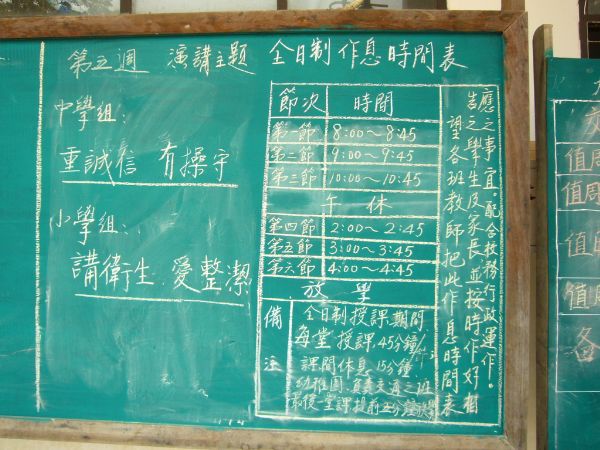 第五週 演講主題
中學組：
重誠信 有操守
小學組：
講衛生 愛整潔
全日制作息時間表
節次 時間
第一節 8:00～8:45
第二節 9:00～9:45
第三節 10:00～10:45
午休
第四節 2:00～2:45
第五節 3:00～3:45
第六節 4:00～4:45
放學
備注
全日制授課期間,
每堂授課45分鐘/
課間休息15分鐘
幼稚園.負責交通之班
最後一堂課提前五分鐘
望各班教師把此作息時間表
告之學生及家長並按時作好相
應之事宜。配合校務行政運作。
值周
值周
值
值周
各